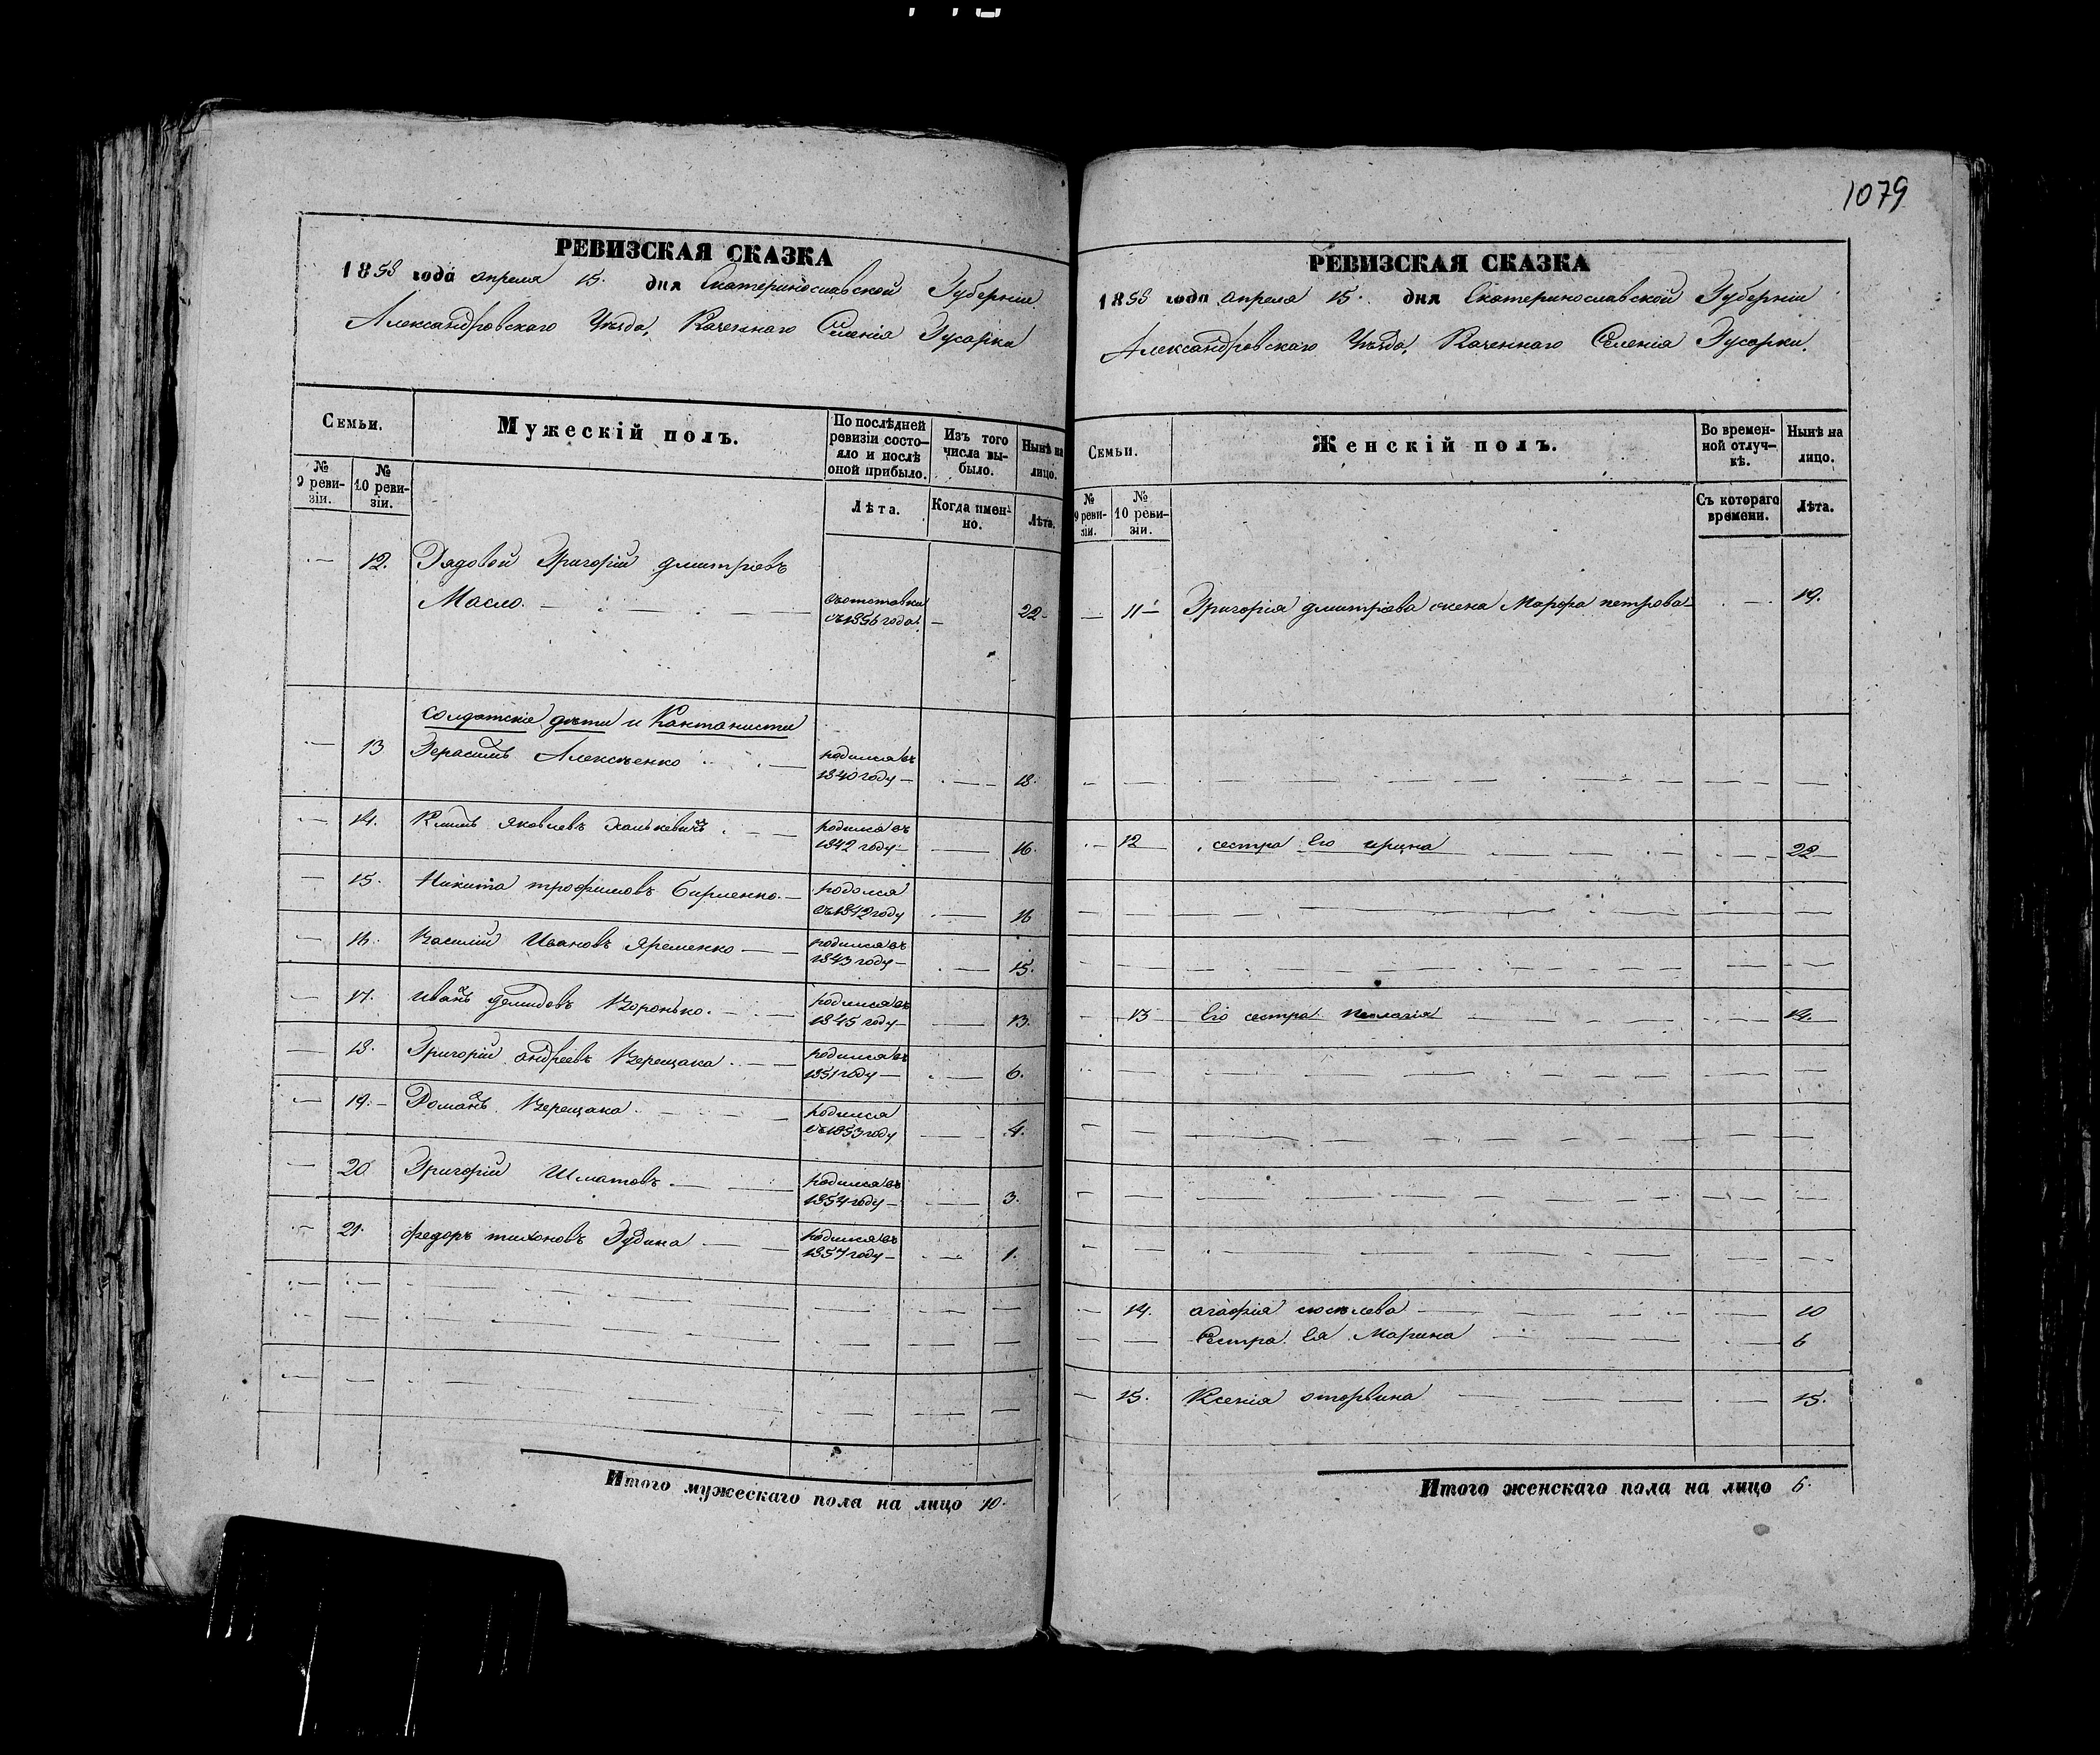 1079
РЕВИЗСКАЯ СКАЗКА
1858 года апреля 15. дня Екатеринославской Губерніи
Александровскаго Уѣзда, Казеннаго Селенія Гусарки
Семьи.
Мужескій полъ.
По послѣдней ревизіи состояло и послѣ оной прибыло.
Изъ того числа выбыло.
Нынѣ на лицо.
№ 9 ревизіи.
№ 10 ревизіи.
Лѣта.
Когда именно.
Лѣта.
12. Рядовой Григорій дмитріевъ
Масло. — въ отставки съ 1856 года — 22
солдатскіе дѣти и Кантонисти
13 Герасимъ Алексѣенко — родился въ 1840 году — 18.
14. Климъ яковлевъ — родился въ 1842 году — 16.
15. Никита трофимовъ — родился въ 1842 году — 16
16. Василій Ивановъ яременко — родился въ 1843 году — 15.
17. иванъ демидовъ Воронько. — родился въ 1845 году — 13.
18. Григорій андреевъ Верещака — родился въ 1851 году — 6.
19. Романъ Верещака — родился въ 1853 году — 4.
20 Григорій Шматовъ — родился въ 1854 году — 3.
21. федоръ тихоновъ — родился въ 1857 году — 1.
Итого мужескаго пола на лицо 10.
РЕВИЗСКАЯ СКАЗКА
1858 года апреля 15. дня Екатеринославской Губерніи
Александровскаго Уѣзда, Казеннаго Селенія Гусарки.
Семьи.
Женскій полъ.
Во временной отлучкѣ.
Нынѣ на лицо.
№ 9 ревизіи.
№ 10 ревизіи.
Съ котораго времени.
Лѣта.
11 — Григорія дмитріева жена Марфа петрова — 19.
12 — сестра Его ирина — 22
13 Его сестра пелагія — 14.
14. агафія — 10
Сестра Ея Марина — 6
15. Ксенія — 15.
Итого женскаго пола на лицо 6.